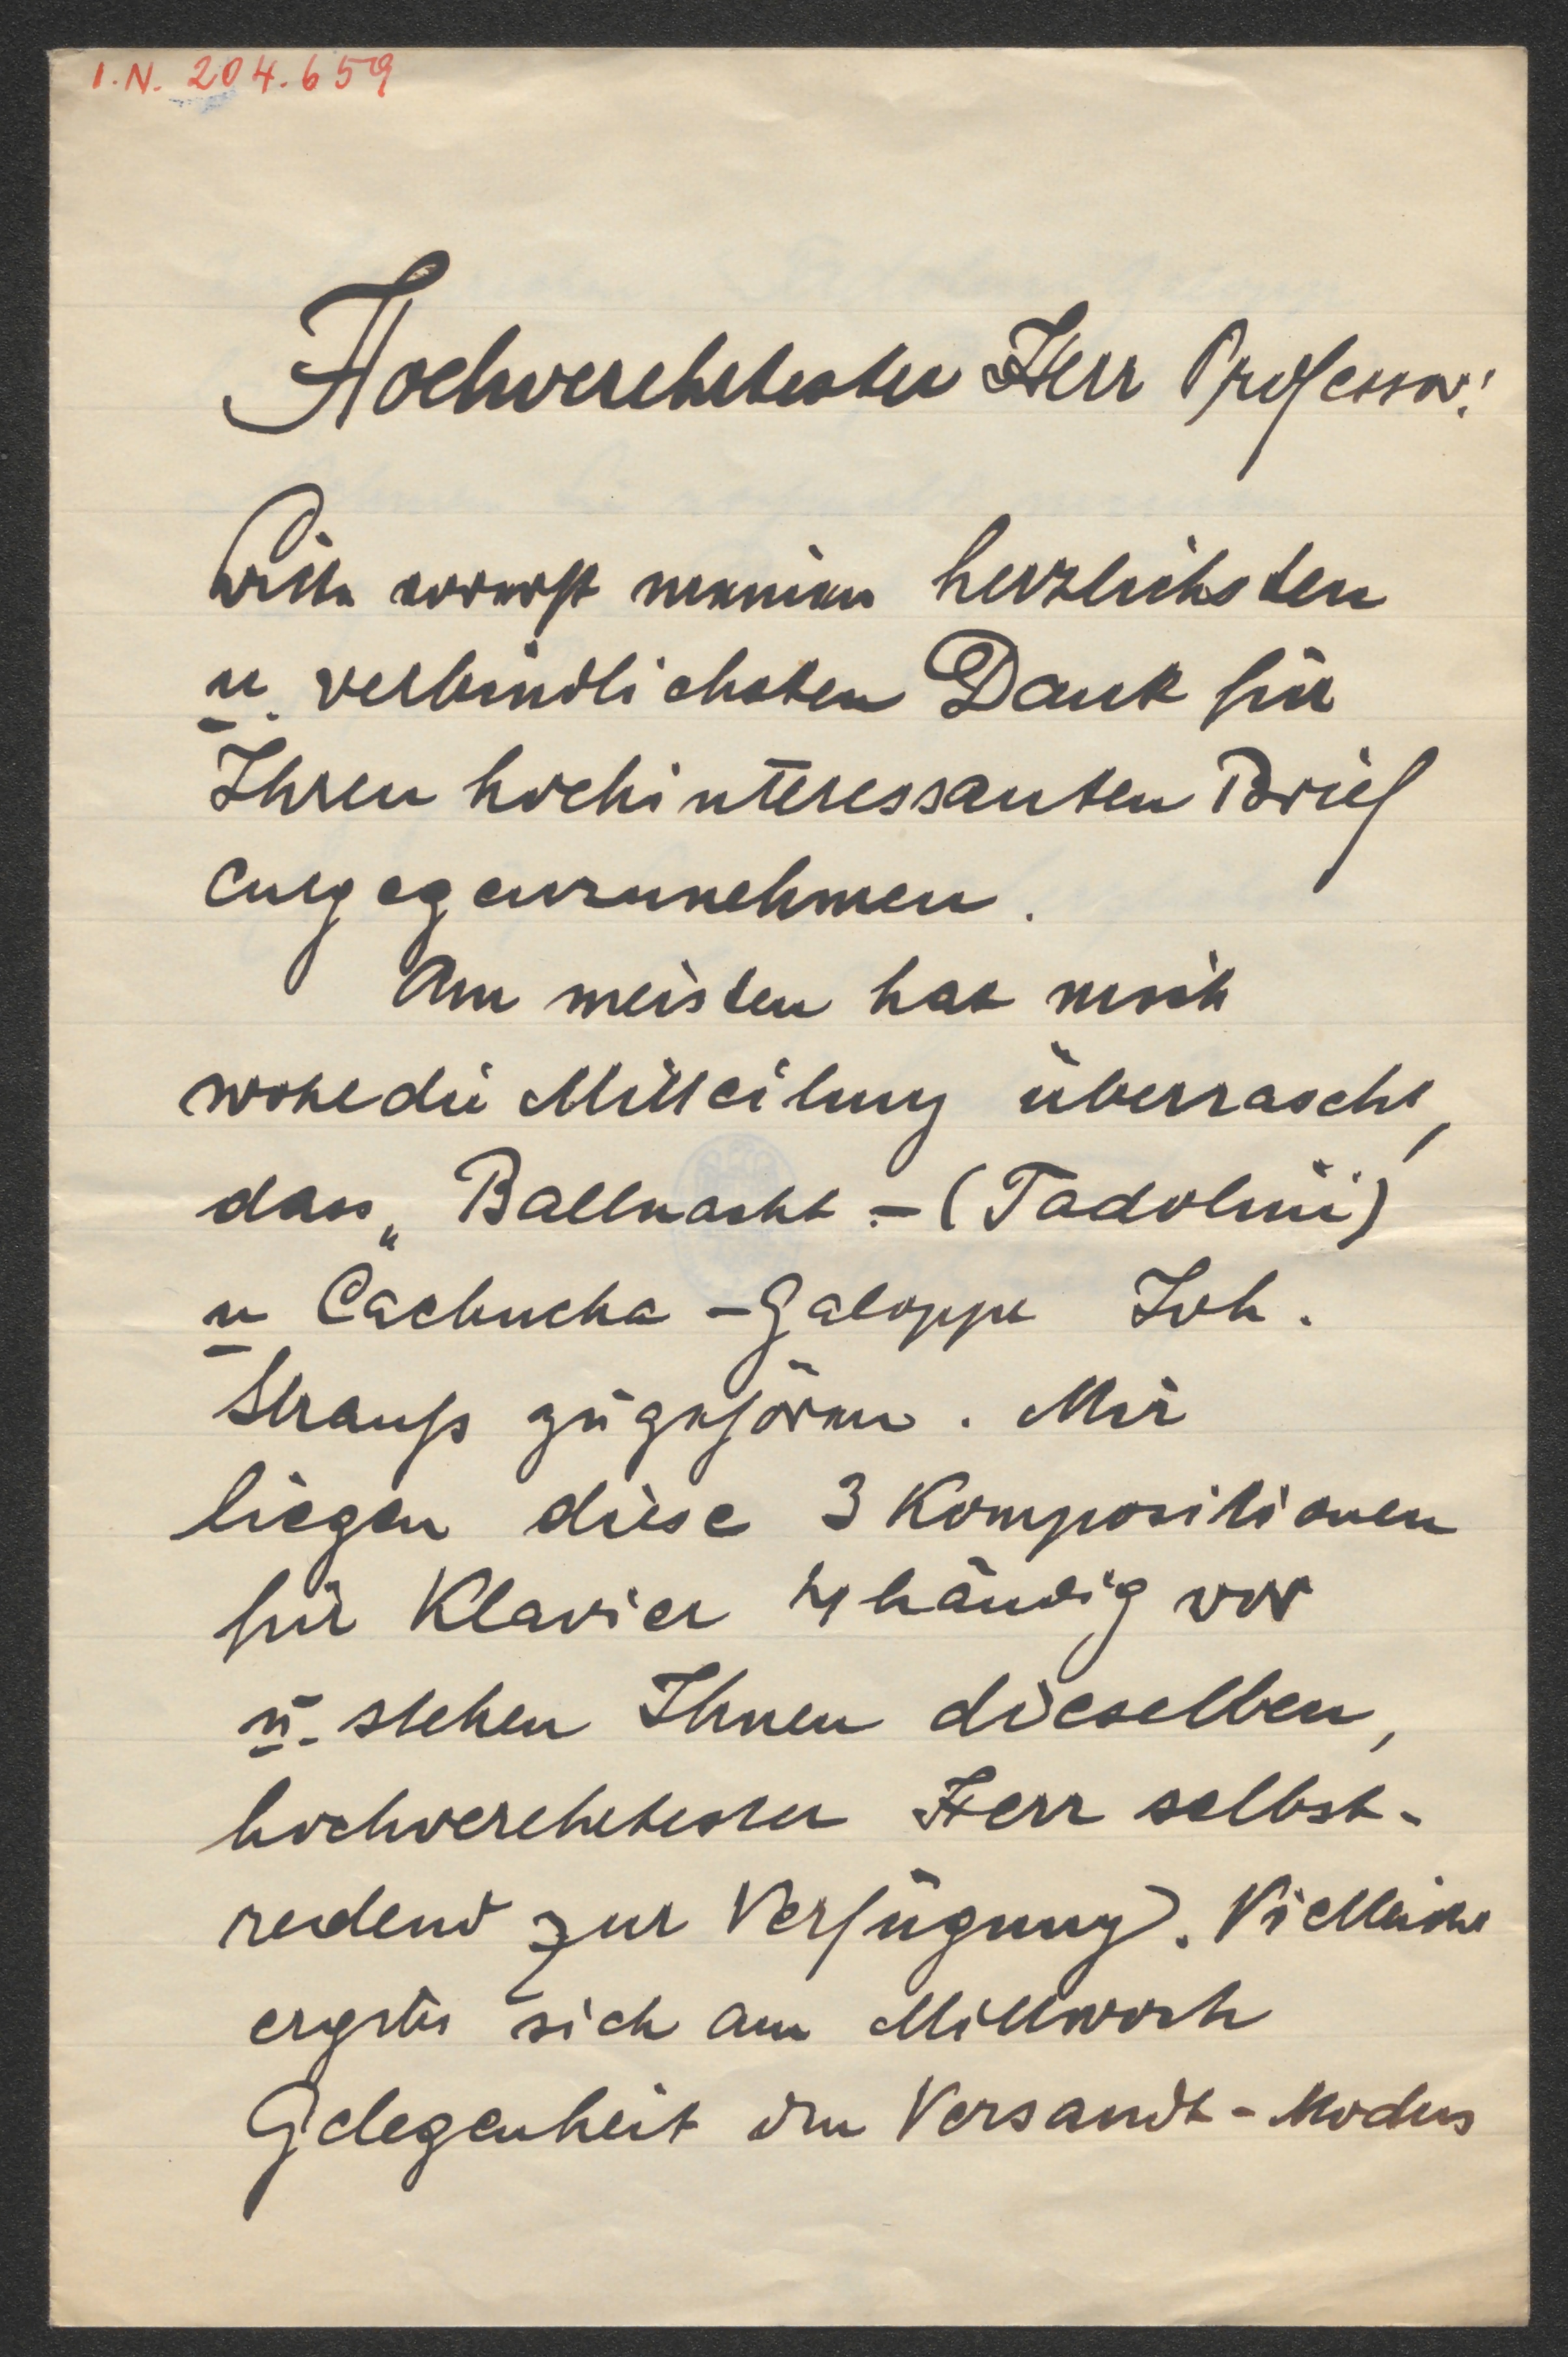 I.N. 204.659
Hochverehrtester Herr Professor!
Bitte vorerst meinen herzlichsten
u. verbindlichsten Dank für
Ihren hochinteressanten Brief
entgegenzunehmen.
Am meisten hat mich
wohl die Mitteilung überrascht,
dass „Ballnacht - (Tadolini)
u Cachucha - Galoppe Joh.
Strauß zugehören. Mir
liegen diese 3 Kompositionen
für Klavier 4händig vor
u. stehen Ihnen dieselben,
hochverehrtester Herr selbst-
redend zur Verfügung. Vielleicht
ergibt sich am Mittwoch
Gelegenheit den Versandt-Modus